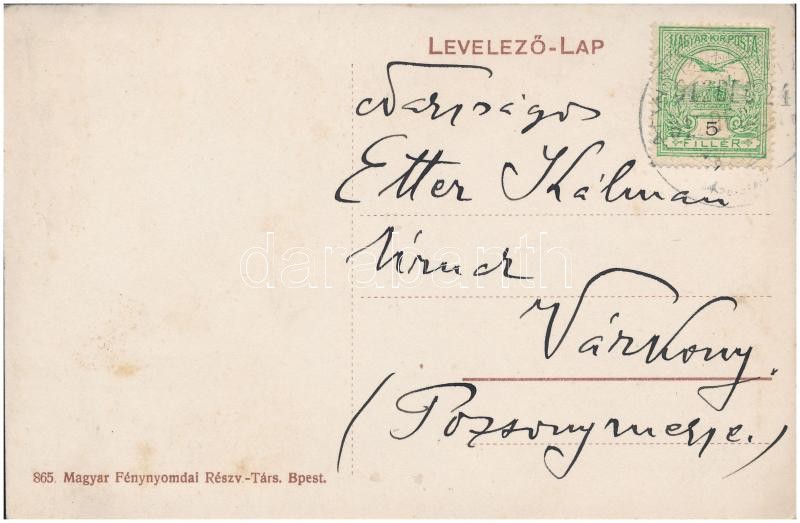 LEVELEZŐ-LAP
MAGYAR KIR. POSTA
5
FILLÉR
Etter Kálmán
Úrnak
Várkony.
(Pozsonymegye.)
darabanth
865. Magyar Fénynyomdai Részv.-Társ. Bpest.